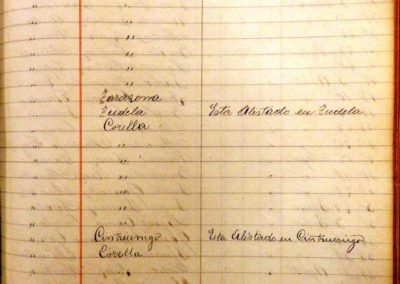 " "
" "
" "
" "
" "
" Tarazona
" Tudela Esta Alistado en Tudela
" Corella
" "
" "
" "
" "
" "
" Cintruenigo Esta Alistado en Cintruenigo
" Corella
"